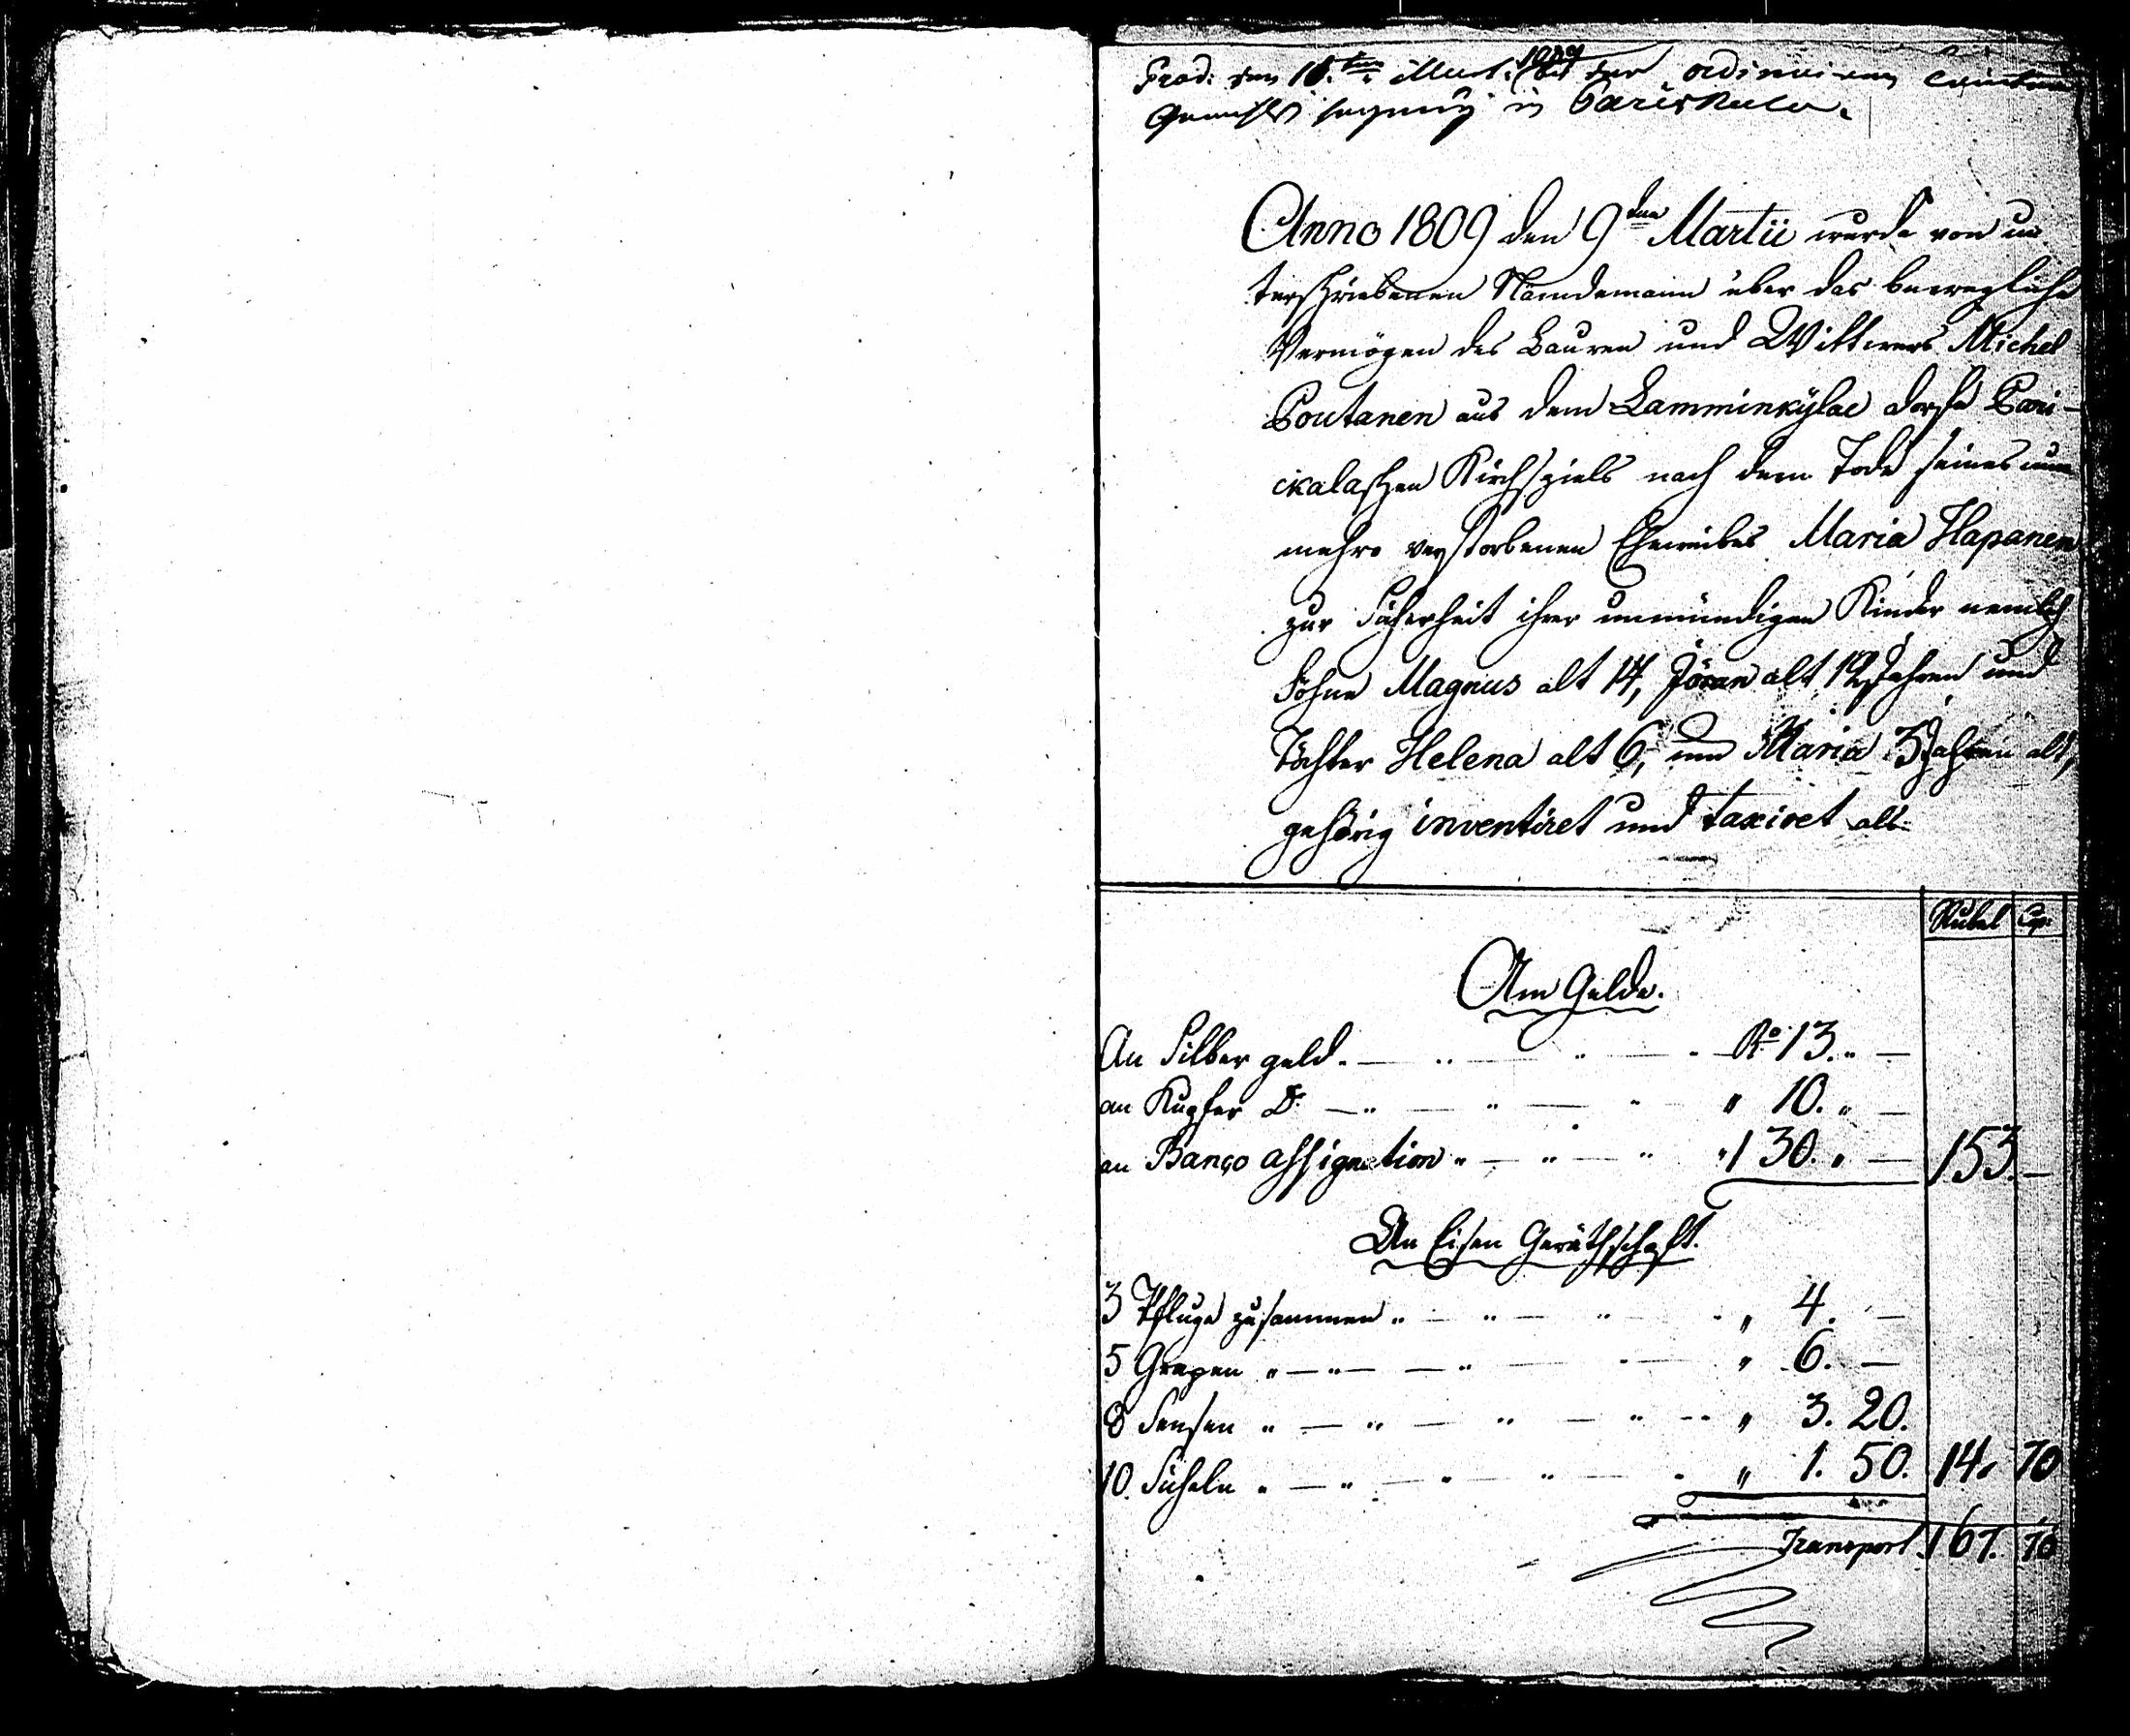 Prod: den 16.ten Mart: 1809 bei der ordinairen Winter
Gerichts hegung in Parickala.
Anno 1809 den 9ten Martii wurde von un
terschriebenen Nämdemann über das bewegliche
Vermögen des Bauren und Wittwers Michel
Poutanen aus dem Lamminkylae dorfe Pari-
ckalaschen Kirchspiels nach dem Tode seines nun
mehro verstorbenen Eheweibes Maria Hapanen
zur Sicherheit ihrer unmündigen Kinder nemlich
Söhne Magnus alt 14, Jöran alt 12 Jahren und
Töchter Helena alt 6, und Maria 3 Jahren alt,
gehörig inventiret und taxiret als:
Rubel Cp.
Am Gelde.
An Silber geld Ro 13. —
an Kupfer Do — " 10. " —
an Banco assignation " 130. " — 153. —
An Eisen Geräthschaft.
3 Pfluge zusammen " 4. —
5 Grapen " 6. —
8 Sensen " 3. 20.
10. Sicheln " 1. 50. 14. 70
Transport. 167. 70